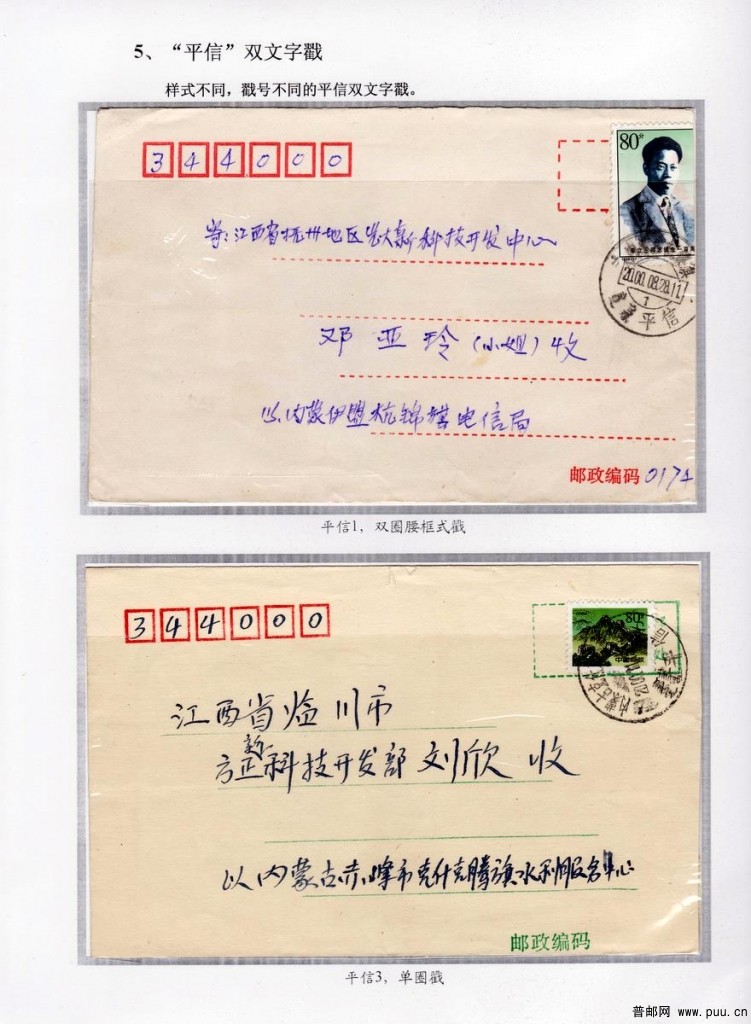 5、“平信”双文字戳
样式不同，戳号不同的平信双文字戳。
344000
80分
寄:江西省杭州地区 大新科技开发中心
2000.08.28.11
1
平信
邓亚玲(小姐)收
以内蒙伊盟杭锦旗电信局
邮政编码 0174
平信1，双圈腰框式戳
344000
80分
江西省临川市
方正新科技开发部 刘欣 收
以内蒙古赤峰市克什克腾旗水利服务中心
邮政编码
平信3，单圈戳
普邮网 www.puu.cn